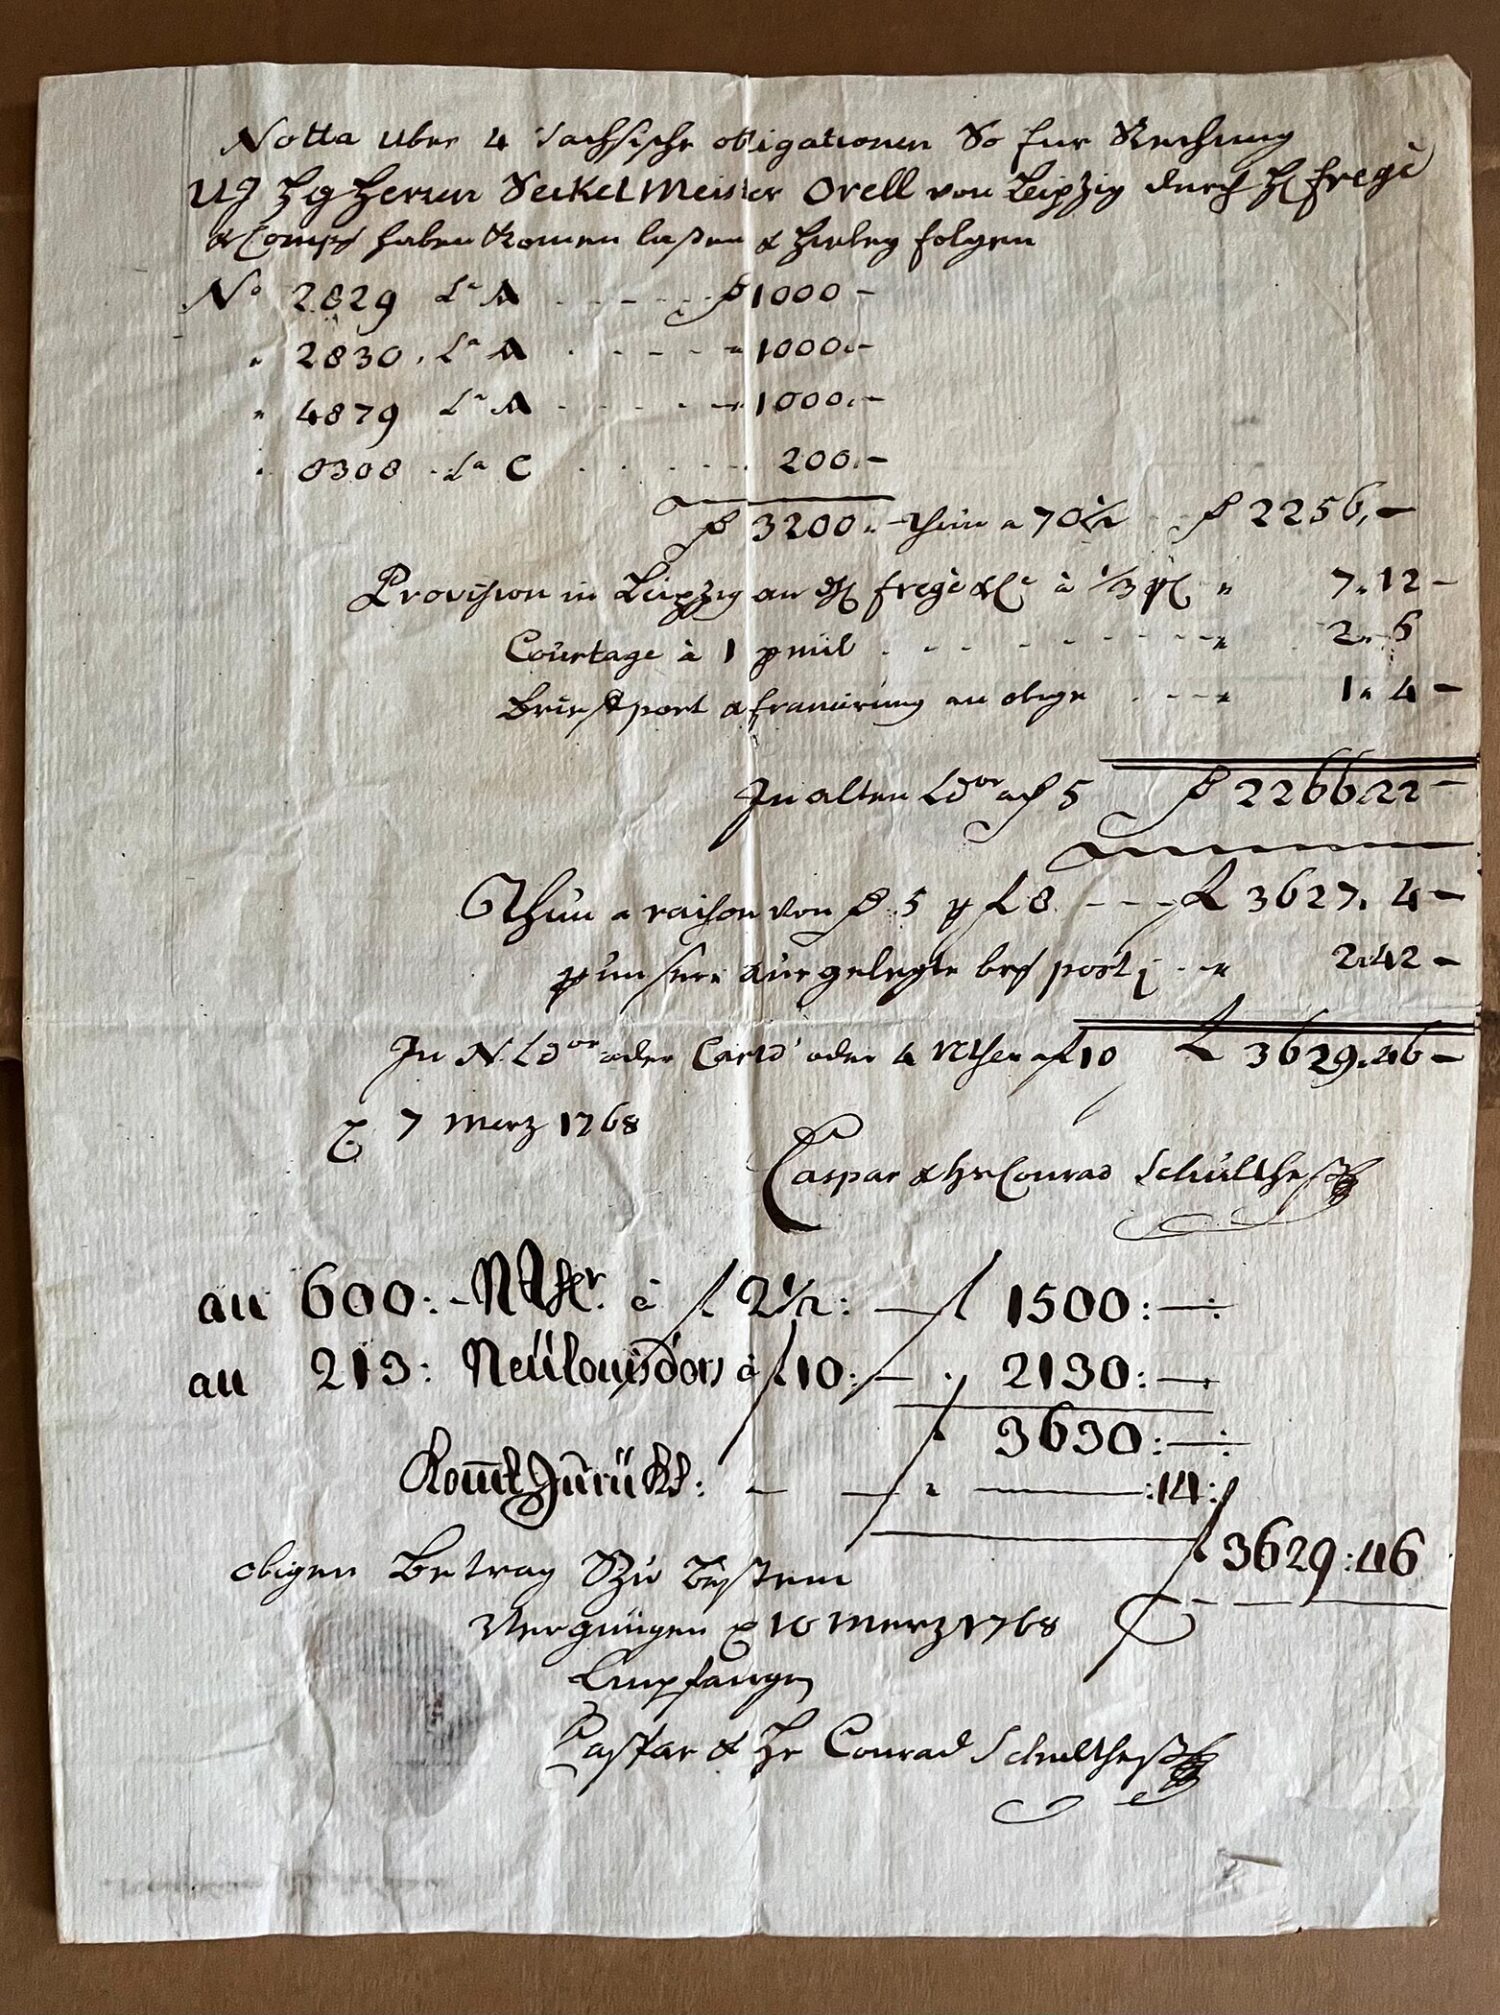 Notta uber 4 Sachsische obligationen So fur Rechung
Ug Hg Herrn Seckel Meister Orell von Leipzig durch H. frege
& Comp haben komen laßen & hierbey folgen
No 2829 La A - - - - 1000 -
" 2830 . La A - - - - " 1000. -
" 4879 La A - - - - " 1000. -
" 8308 . La C - - - - 200. -
3200. - thun a 70 1/2 2256. -
Provision in Leipzig an H frege & Ce à 1/3 pC " 7. 12 -
Courtage à 1 p mil - - - - " 2. 6
Briefport & francirung an obige - - - " 1. 4 -
In alten Ldor a 5 2266.22 -
Thun a raison von 5 p f 8 - - - f 3627. 4 -
p unsere ausgelegte post - " 2.42 -
In N. Ldor oder Carld oder 4 Nther a f 10 f 3629.46 -
7 Merz 1768
Caspar & Hs Conrad Schulthess
an 600: - NThlr. à f 2 1/2: — f 1500: —:
an 213: Neülouisdors à f 10: — " 2130: —
" 3630: —:
Komt Zurückh: — — " —— :14:
f 3629:46
obigen Betrag Zu bestem
Vergnügen 10 Merz 1768
Empfangen
Caspar & Hs Conrad Schulthess